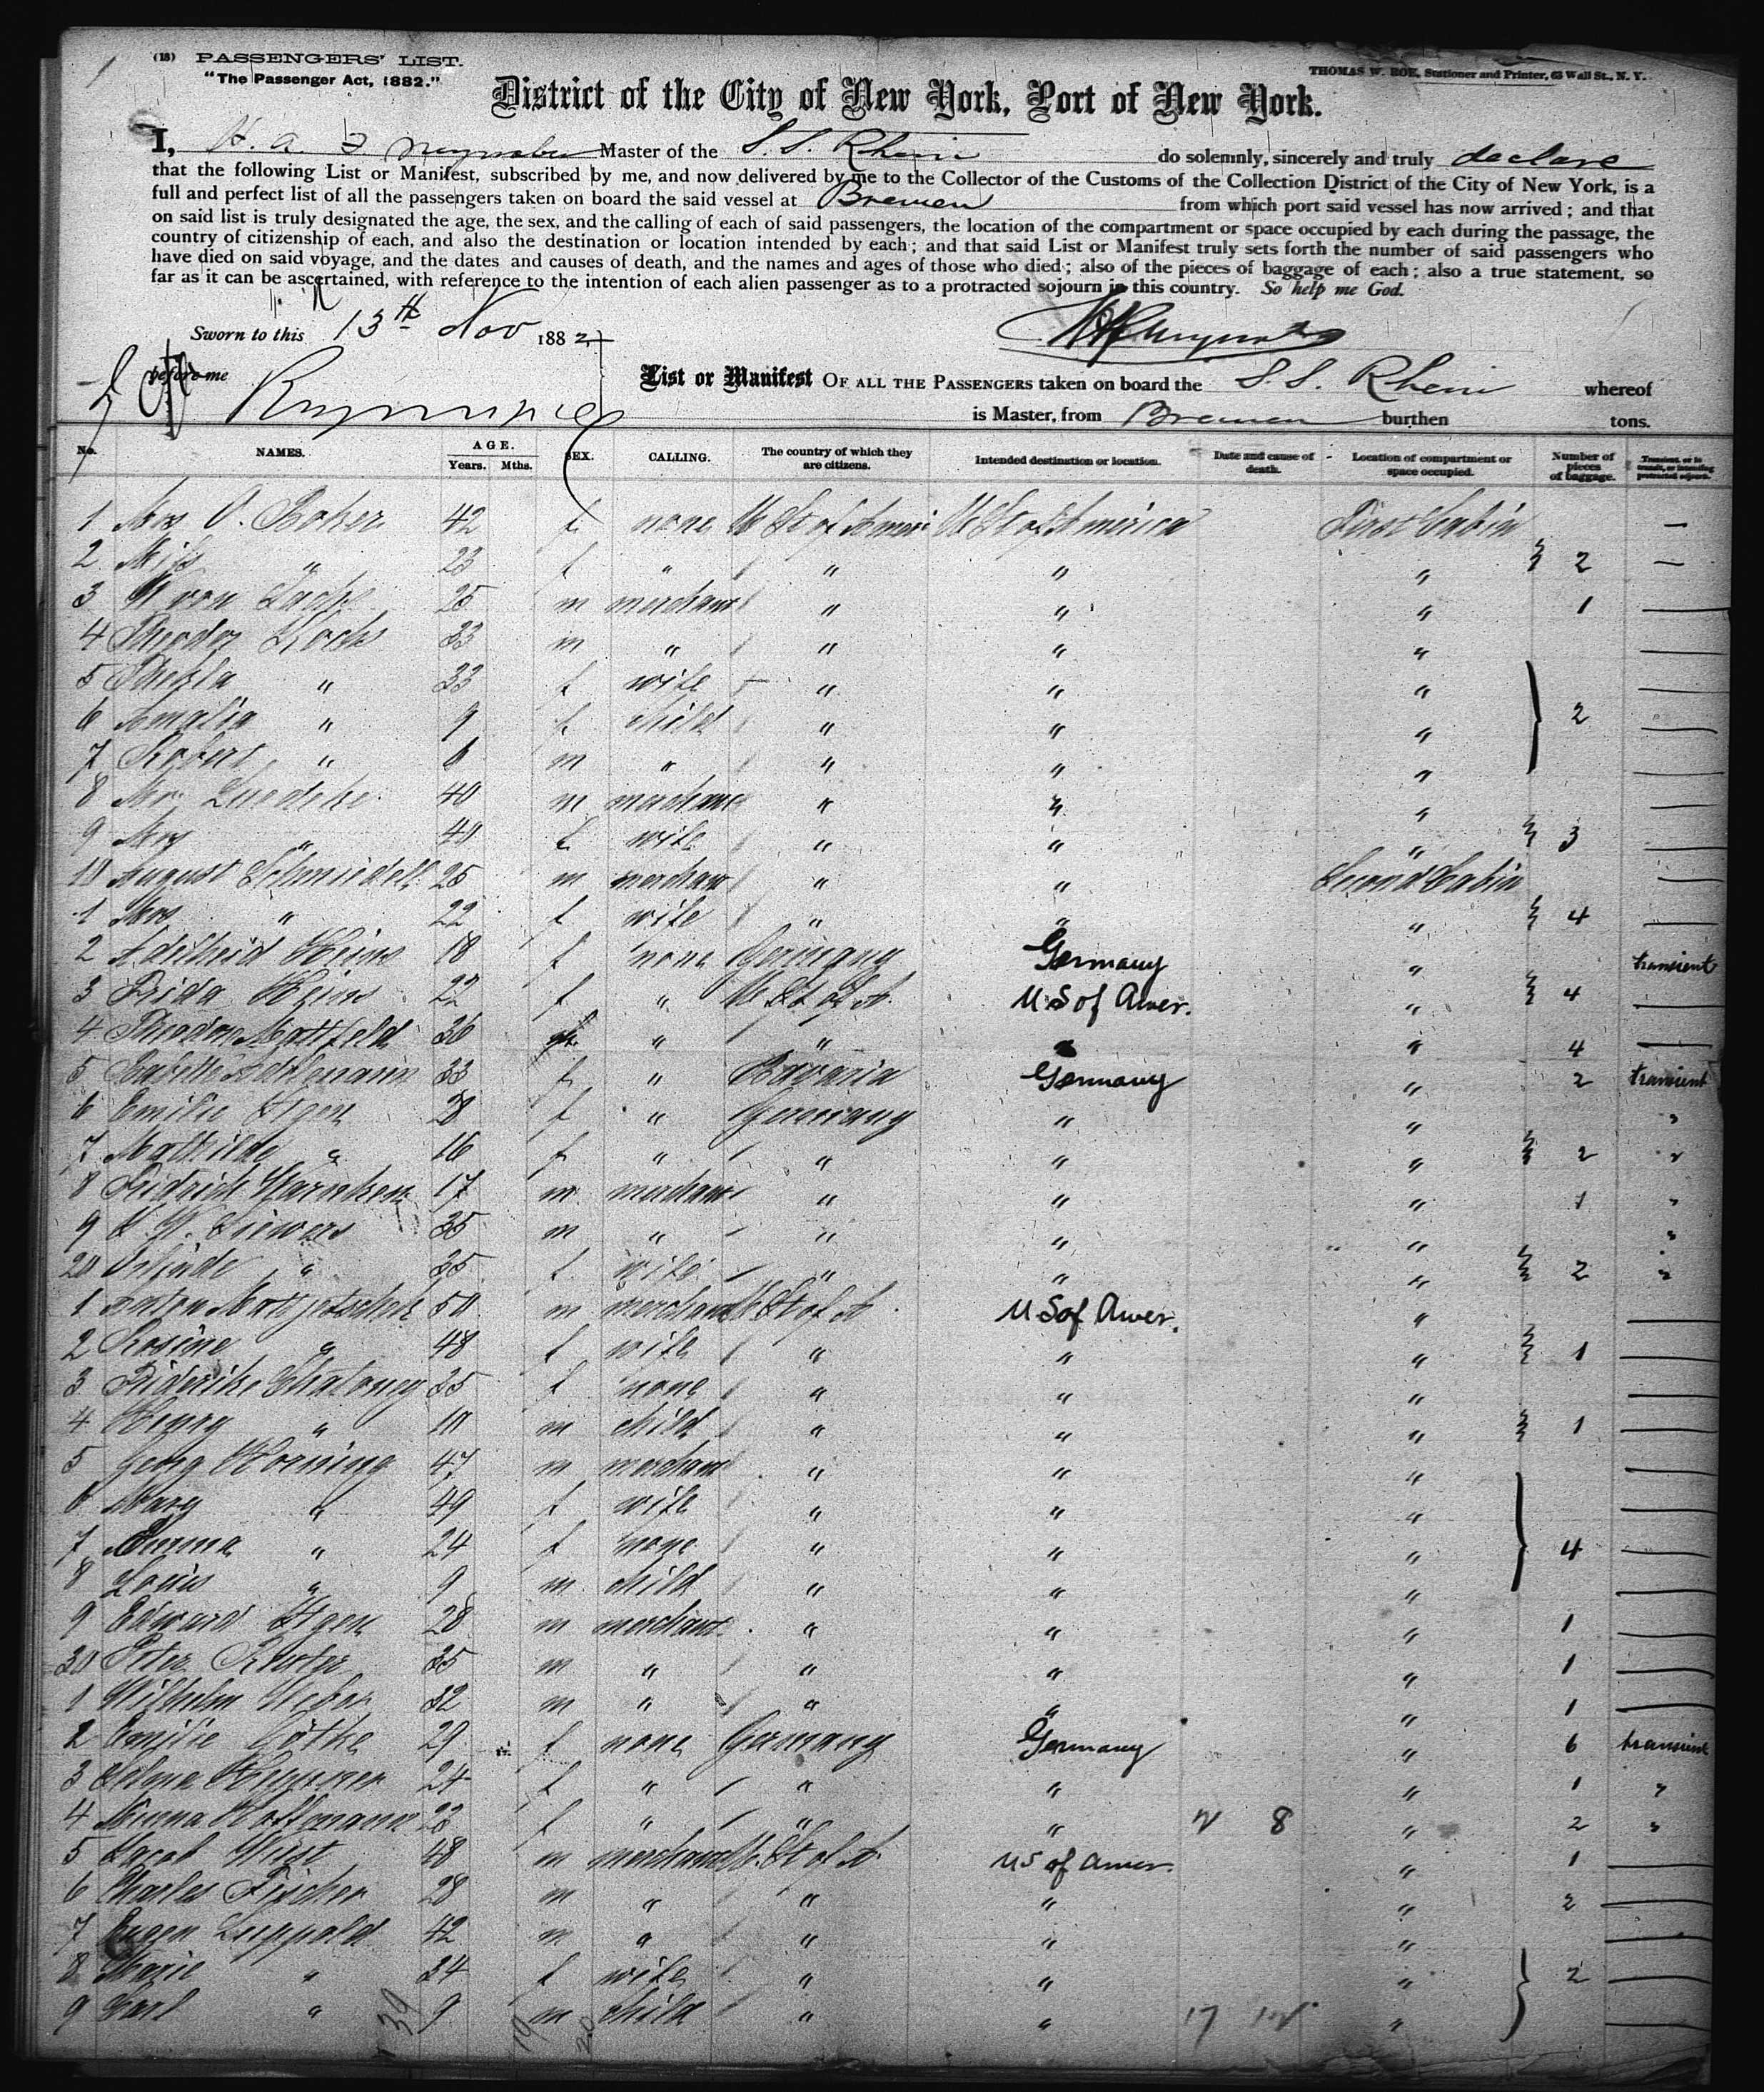 (18) PASSENGERS' LIST.
"The Passenger Act, 1882."
THOMAS W. ROE, Stationer and Printer, 63 Wall St., N. Y.
District of the City of New York, Port of New York.
I, H. A. F. Master of the S. S. Rhein do solemnly, sincerely and truly declare
that the following List or Manifest, subscribed by me, and now delivered by me to the Collector of the Customs of the Collection District of the City of New York, is a
full and perfect list of all the passengers taken on board the said vessel at Bremen from which port said vessel has now arrived; and that
on said list is truly designated the age, the sex, and the calling of each of said passengers, the location of the compartment or space occupied by each during the passage, the
country of citizenship of each, and also the destination or location intended by each; and that said List or Manifest truly sets forth the number of said passengers who
have died on said voyage, and the dates and causes of death, and the names and ages of those who died; also of the pieces of baggage of each; also a true statement, so
far as it can be ascertained, with reference to the intention of each alien passenger as to a protracted sojourn in this country. So help me God.
Sworn to this 13th Nov 1882
before me
List or Manifest OF ALL THE PASSENGERS taken on board the S. S. Rhein whereof
is Master, from Bremen burthen tons.
No. NAMES. AGE. Years. Mths. SEX. CALLING. The country of which they are citizens. Intended destination or location. Date and cause of death. Location of compartment or space occupied. Number of pieces of baggage. Transient, or in transit, or intending protracted sojourn.
1 Mrs 42 f none U St of Ameri U St of America First Cabin —
2 Miss " 23 f " " " " 2 —
3 von 25 m merchant " " " 1 —
4 Theodor Kochs 33 m " " " " —
5 Thekla " 33 f wife " " " —
6 Amalia " 9 f child " " " 2 —
7 Robert " 6 m " " " " —
8 Mr. Luedeke 40 m merchant " " " —
9 Mrs " 40 f wife " " " 3 —
10 August Schmiedell 25 m merchant " " Second Cabin —
1 Mrs " 22 f wife " " " 4 —
2 Adelheid Heins 18 f none Germany Germany " transient
3 Frida Heins 22 f " U St of A. U.S of Amer. " 4 —
4 Theodore Mattfeld 36 " " " " 4 —
5 Babette 33 f " Bavaria Germany " 2 transient
6 Emilie Ilgen 28 f " Germany " " "
7 Mathilde " 16 f " " " " 2 "
8 Fridrich Warnken 17 m merchant " " " 1 "
9 Siewers 35 m " " " " "
20 " 35 f wife " " " 2 "
1 Anton 50 m merchant U St of A. U S of Amer. " —
2 Rosine " 48 f wife " " " 1 —
3 Friderike 35 f none " " " —
4 Henry " 10 m child " " " 1 —
5 Georg Horning 47 m merchant " " " —
6 Mary " 49 f wife " " " —
7 Emma " 24 f none " " " 4 —
8 Louis " 9 m child " " " —
9 Edward Ilgen 28 m merchant " " " 1 —
30 Peter 35 m " " " " 1 —
1 Wilhelm Weber 32 m " " " " 1 —
2 Emilie Göthe 29 f none Germany Germany " 6 transient
3 Selma 24 f " " " " 1 "
4 Minna Hoffmann 23 f " " " 8 " 2 "
5 Jacob Wüst 48 m merchant U. St of A. U S of Amer. " 1 —
6 Charles Fischer 28 m " " " " 2 —
7 Eugen Luppold 42 m " " " " —
8 Marie " 34 f wife " " " 2 —
9 Carl " 9 m child " " 17 " —
39 19 20